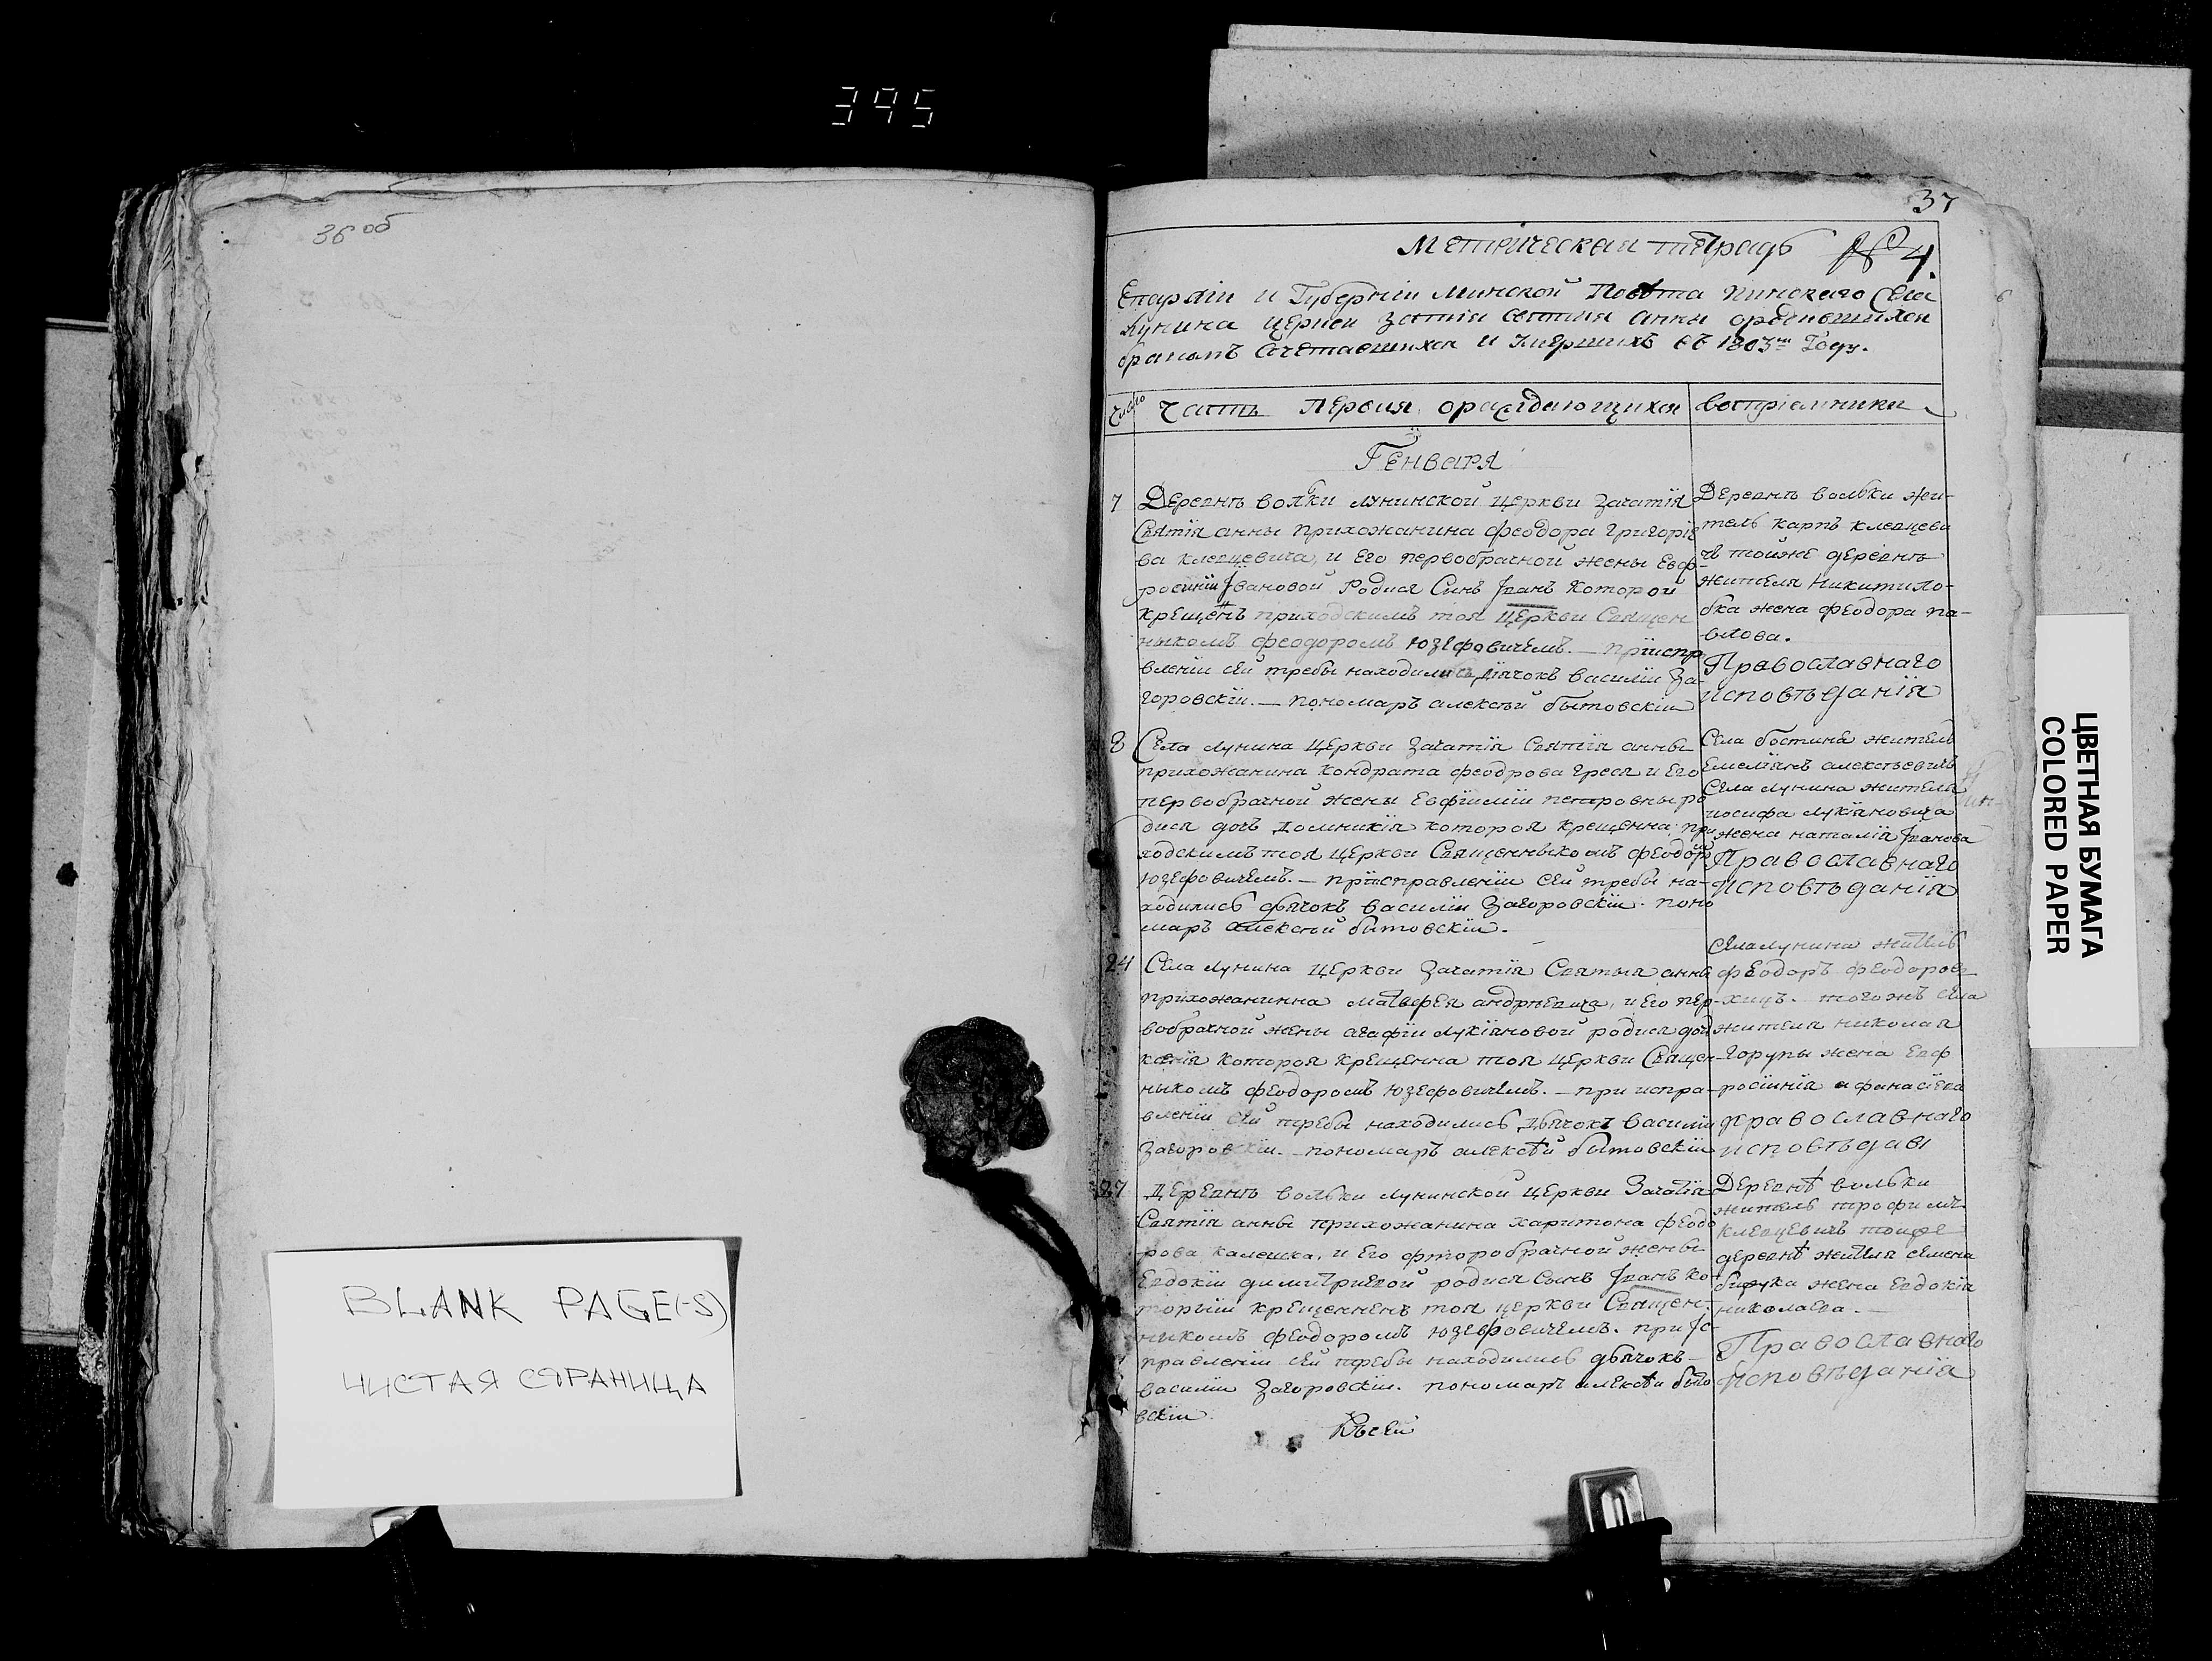 395
36 об
BLANK PAGE(-S)
ЧИСТАЯ СТРАНИЦА
37
Метрическая тетрадь № 4.
Епархіи и Губерніи Минской Повѣта Пинского Села
Лунина церкви Зачтія святия Анны
бракомъ Сочетавшихся и Умершихъ въ 1803м Году.
Число
Часть первия ораждающихся
воспріемники
Генваря
7
Деревнѣ волки лунинской церкви Зачатія
Святія анны прихожанина феодора Григоріе
ва клевцевича, и Его первобрачной жены Евф
росиніи Івановой Родися Синъ Іванъ Которой
Крещенъ приходскимъ тоя Церкви Священ
ныкомъ феодоромъ Юзефовичемъ. — приіспр
вленіи сей требы находились діячокъ василіи За-
горовскіи. — пономаръ алексѣй бытовскіи
Деревнѣ вольки жи-
тель карпъ клевцеви
чъ тойже деревнѣ
жителя Никити Ло-
бка жена феодора па-
влова.
Православнаго
исповѣданія
8
Села Лунина Церкви Зачатія Святія анны
прихожанина Кондрата феодрова Греся и Его
первобрачной жены Евфиміи петровны ро
дися дочъ Домникія котороя крещенна при
ходскимъ тоя Церкви Священныкомъ феодор
Юзефовичемъ. — приісправленіи Сей требы на-
ходились дьячокъ Василіи Загоровскіи. поно
маръ алексѣй бытовскіи.
Села бостиня житель
Емеліянъ алексѣевичъ
Села Лунина жителя
иосифа Лукіяновича
жена наталія Іванова
Православнаго
Исповѣданія
24
Села Лунина Церкви Зачатія Святыя анны
прихожанинна матвфея андрѣевича, и Его пер-
вобрачной жены агафіи лукіяновой родися доч
ксенія Котороя Крещенна тоя Церкви Священ-
ныкомъ феодоромъ Юзефовичемъ. — при испра-
вленіи Сей требы находились дьячокъ Василіи
Загоровскіи. — пономаръ алексѣй бытовскіи
Села лунина житель
феодоръ феодоров
тогожъ села
жителя николая
Горупы жена Евф
росиінія афанасіева
православнаго
исповѣдані
27
Деревнѣ вольки лунинской церкви Зачатія
Святія анны прихожанина харитона феодо
рова калешка, и Его фторобрачной жены
Евдокіи димитриевой родися Сынъ Іванъ Ко-
торыіи крещенненъ тоя церкви Священ-
ныкомъ феодоромъ Юзефовичемъ. при Іс-
правленіи Сей требы находились дьячокъ —
василіи Загоровскіи. пономаръ алексѣй быто
вскіи
Деревнѣ вольки
житель трофимъ
клевцевичъ тойже
деревнѣ жителя семена
жена Евдокія
николаева. —
Православнаго
Исповѣданія
Къ сей
ЦВЕТНАЯ БУМАГА
COLORED PAPER